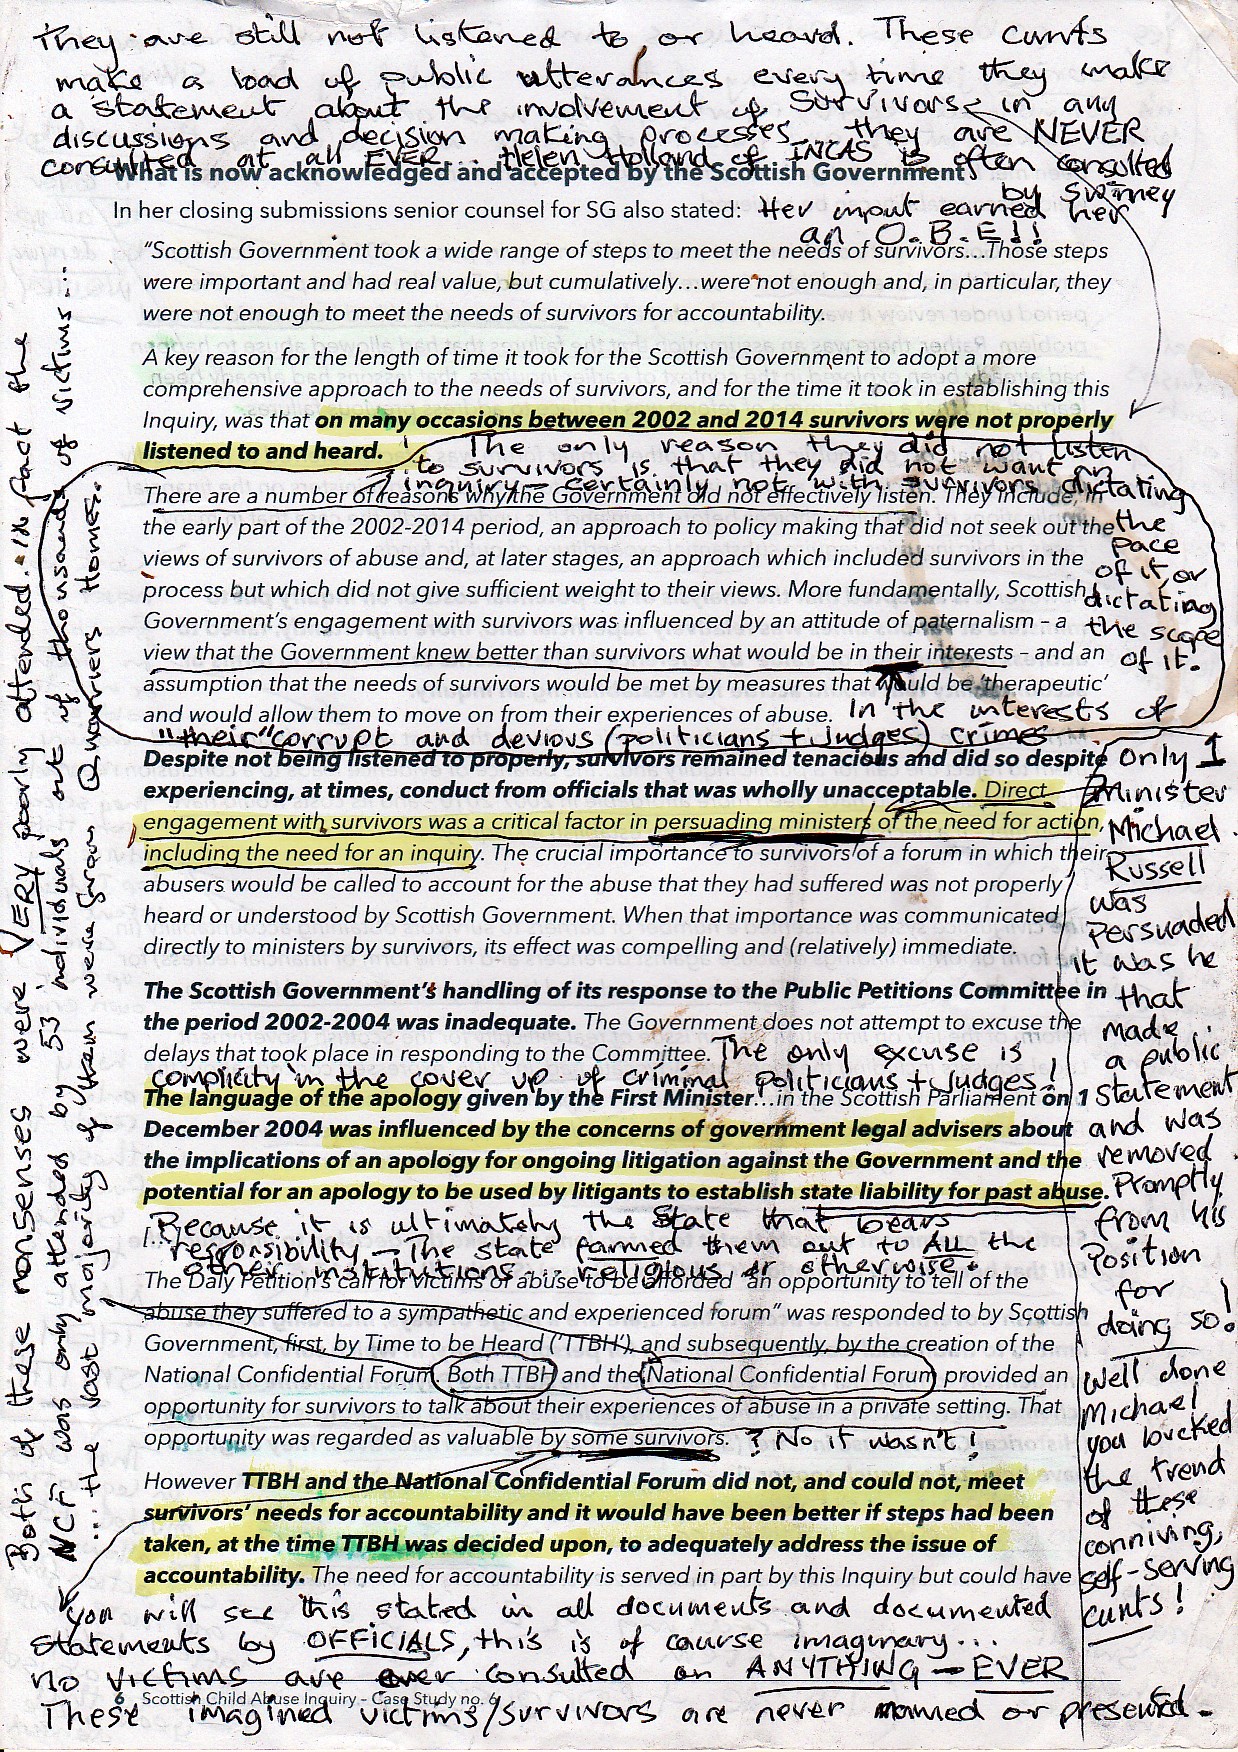 They are still not listened to or heard. These cunts
make a load of public utterances every time they make
a statement about the involvement of Survivors in any
discussions and decision making processes, they are NEVER
consulted at all EVER. Helen Holland of INCAS is often consulted
by Swinney
What is now acknowledged and accepted by the Scottish Government
In her closing submissions senior counsel for SG also stated:
Her input earned her
an O.B.E!!
“Scottish Government took a wide range of steps to meet the needs of survivors…Those steps
were important and had real value, but cumulatively…were not enough and, in particular, they
were not enough to meet the needs of survivors for accountability.
A key reason for the length of time it took for the Scottish Government to adopt a more
comprehensive approach to the needs of survivors, and for the time it took in establishing this
Inquiry, was that on many occasions between 2002 and 2014 survivors were not properly
listened to and heard.
The only reason they did not listen
to survivors is that they did not want an
inquiry - certainly not with survivors dictating
the
pace
of it, or
dictating
the scope
of it.
There are a number of reasons why the Government did not effectively listen. They include, in
the early part of the 2002-2014 period, an approach to policy making that did not seek out the
views of survivors of abuse and, at later stages, an approach which included survivors in the
process but which did not give sufficient weight to their views. More fundamentally, Scottish
Government’s engagement with survivors was influenced by an attitude of paternalism – a
view that the Government knew better than survivors what would be in their interests – and an
assumption that the needs of survivors would be met by measures that would be ‘therapeutic’
and would allow them to move on from their experiences of abuse.
In the interests of
"their" corrupt and devious (politicians + judges) crimes
Despite not being listened to properly, survivors remained tenacious and did so despite
experiencing, at times, conduct from officials that was wholly unacceptable. Direct
engagement with survivors was a critical factor in persuading ministers of the need for action,
including the need for an inquiry. The crucial importance to survivors of a forum in which their
abusers would be called to account for the abuse that they had suffered was not properly
heard or understood by Scottish Government. When that importance was communicated
directly to ministers by survivors, its effect was compelling and (relatively) immediate.
The Scottish Government’s handling of its response to the Public Petitions Committee in
the period 2002-2004 was inadequate. The Government does not attempt to excuse the
delays that took place in responding to the Committee.
The only excuse is
complicity in the cover up of criminal politicians + judges!
The language of the apology given by the First Minister…in the Scottish Parliament on 1
December 2004 was influenced by the concerns of government legal advisers about
the implications of an apology for ongoing litigation against the Government and the
potential for an apology to be used by litigants to establish state liability for past abuse.
Because it is ultimately the State that bears
responsibility - The state farmed them out to ALL the
other institutions.. religious or otherwise.
The Daly Petition’s call for victims of abuse to be afforded “an opportunity to tell of the
abuse they suffered to a sympathetic and experienced forum” was responded to by Scottish
Government, first, by Time to be Heard (‘TTBH’), and subsequently, by the creation of the
National Confidential Forum. Both TTBH and the National Confidential Forum provided an
opportunity for survivors to talk about their experiences of abuse in a private setting. That
opportunity was regarded as valuable by some survivors.
? No it wasn't!
However TTBH and the National Confidential Forum did not, and could not, meet
survivors’ needs for accountability and it would have been better if steps had been
taken, at the time TTBH was decided upon, to adequately address the issue of
accountability. The need for accountability is served in part by this Inquiry but could have
Only 1
Minister
Michael
Russell
was
persuaded
it was he
that
made
a public
statement
and was
removed
Promptly
from his
Position
for
doing so!
Well done
Michael
you bucked
the trend
of these
conniving,
self-serving
cunts!
Both of these nonsenses were VERY poorly attended.. in fact the
NCF was only attended by 53 individuals out of thousands of victims...
... the vast majority of them were from Quarriers Homes.
you will see this stated in all documents and documented
statements by OFFICIALS, this is of course imaginary...
no victims are ever consulted on ANYTHING - EVER
6 Scottish Child Abuse Inquiry – Case Study no. 6
These imagined victims/survivors are never named or presented.